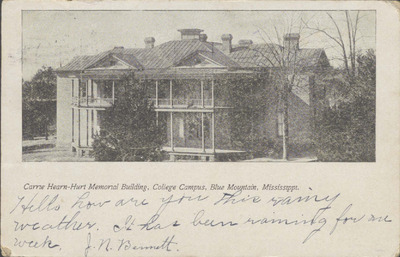 Carrie Hearn-Hurt Memorial Building, College Campus, Blue Mountain, Mississippi.
Hello how are you this rainy
weather. It has been raining for one
week. J. N. Bennett.